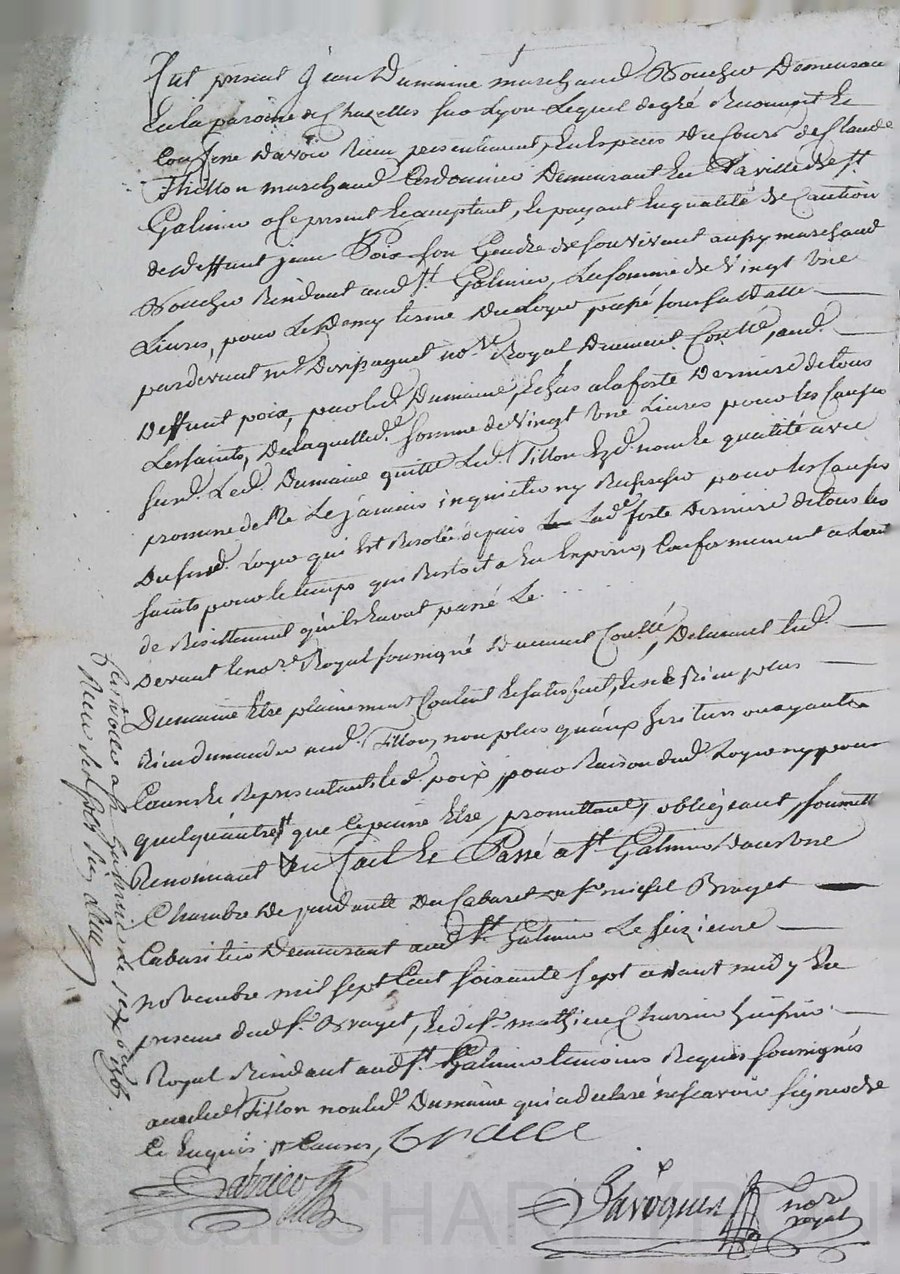 fut présent Jean Dumaine marchand Boucher Demeurant
En la paroisse de Chazelles sur Lyon Lequel de gré Reconnoit Et
Confesse D'avoir Reçu presentement, En Espèces Du Cours de Claude
Thillon marchand Cordonnier Demeurant En La ville de St
Galmier, Ice present Et acceptant, Et payant En qualité de Caution
de deffunt jean Poix son Gendre de son vivant aussy marchand
Boucher Résidant aud. St Galmier, La somme de Vingt Une
Livres, pour Le Demy terme Du Loyer passé sous sa datte
pardevant Me no.re Royal Duement Contllé, aud.
Deffunt poix, par led. Dumaine, Echus a la feste Derniere de tous
Les saints, De laquelle d. somme de Vingt Une Livres pour les Causes
surd. Led. Dumaine quitte Led. Tillon Esd. nom Et qualité avec
promesse de Ne Le jamais inquietter ny Rechercher pour les Causes
Du susd. Loyer qui Est Resolé depuis Lad.e feste Derniere de tous les
saints pour le temps qui Restoit a En Expirer, Conformement a Lacte
de Resiliement qu'ils En ont passé Le . . .
Devant le no.re Royal soussigné Duement Contllé, Declarant led.
Dumaine Etre plainement Content Et satisfait, Et ne Rien plus
Rien demander aud. Tillon, non plus qu'aux heritiers ou ayants
Cause Et Representants led. poix, pour Raison dud. Loyer ny pour
quelqu'autre que Ce puisse Etre, promettant, obligeant, soumett
Renonçant &c fait Et Passé a St Galmier dans Une
Chambre Dependante Du Cabaret de Sr michel Brayet
Cabaretier Demeurant aud. St Galmier Le seizieme
novembre mil sept Cent soixante sept avant midy En
presence dud. Sr Brayet, Et de Sr mathieu Charrin huissier
Royal Résidant aud. St Galmier temoins Requis soussignés
avec led. Tillon non led. Dumaine qui a declaré ne sçavoir signer de
Ce Enquis, Et
nore
royal
Controllé a St Galmier Le
Reçu